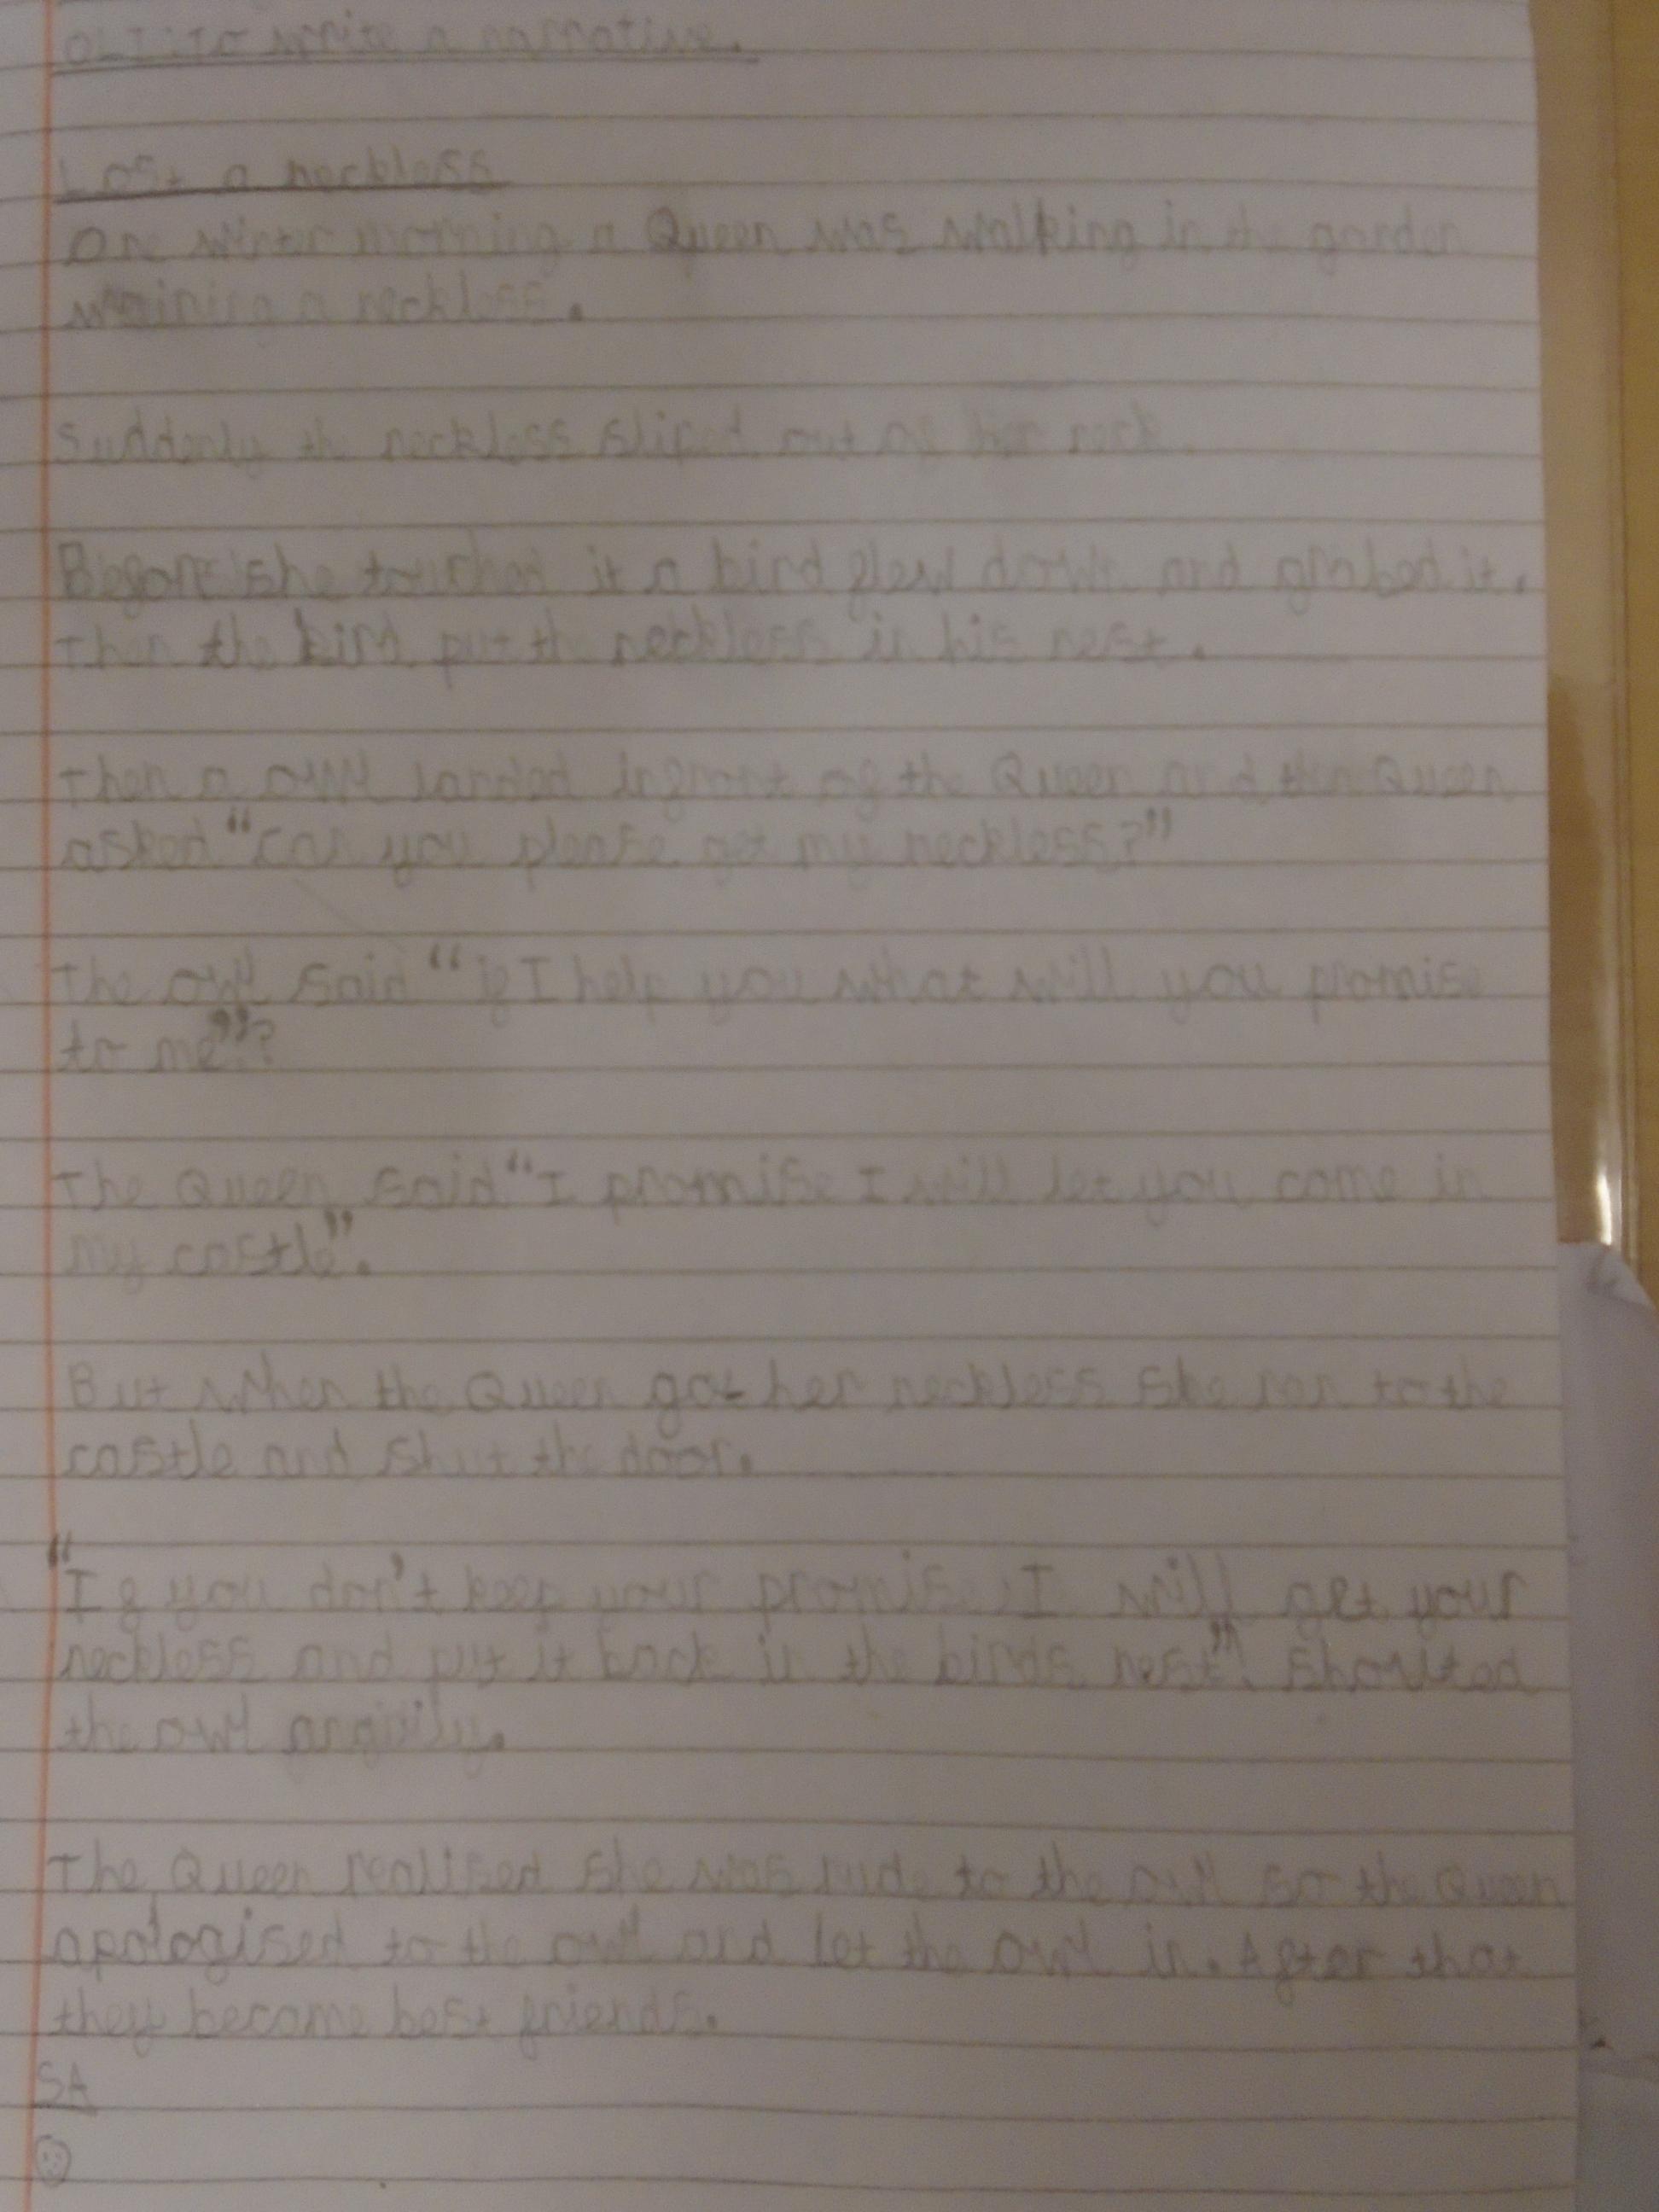 OLI: to write a narrative.
Lost a neckless
One winter morning a Queen was walking in the garden
waring a neckless.
Suddenly the neckless sliped out of her neck.
Before she touched it a bird flew down and grabed it.
Then the bird put the neckless in his nest.
Then a owl landed in front of the Queen and the Queen
asked "can you please get my neckless?"
The owl said "if I help you what will you promise
to me"?
The Queen said "I promise I will let you come in
my castle".
But when the Queen got her neckless she ran to the
castle and shut the door.
"If you don't keep your promise I will get your
neckless and put it back in the birds nest". shouted
the owl angrily.
The Queen realised she was rude to the owl so the Queen
apologised to the owl and let the owl in. After that
they become best friends.
SA